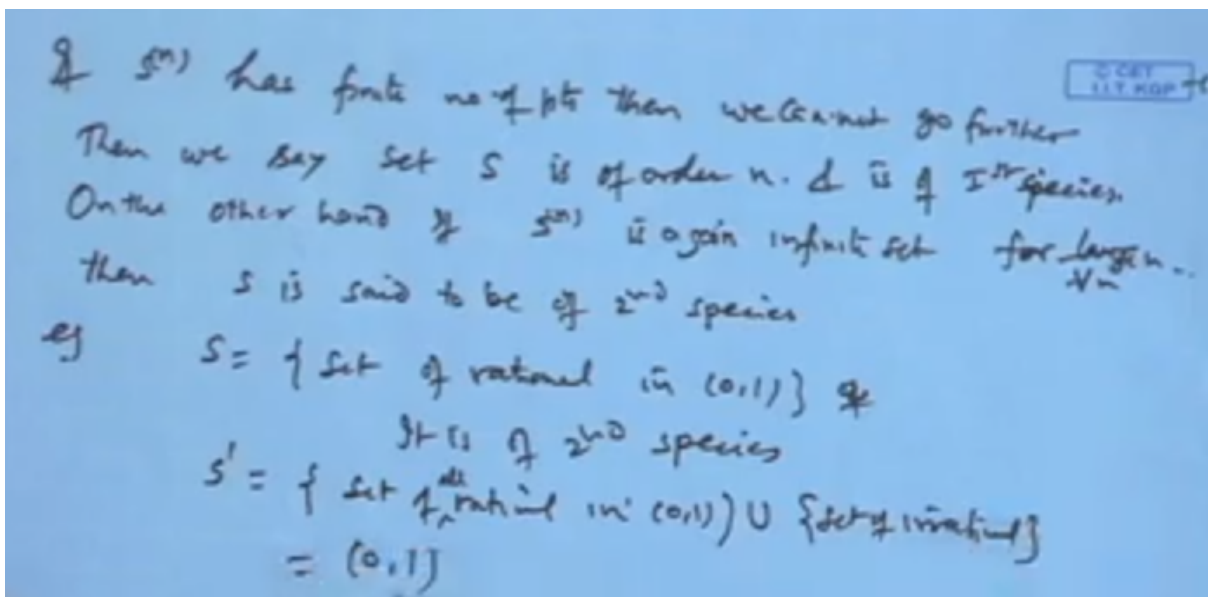 If S⁽ⁿ⁾ has finite no of pts then we cannot go further
© CET
I.I.T. KGP
Then we say set S is of order n. & is of Iˢᵗ species.
On the other hand if S⁽ⁿ⁾ is again infinite set for large n..
∀n
then S is said to be of 2ⁿᵈ species
eg S = { Set of rational in (0,1) }
It is of 2ⁿᵈ species
S' = { Set of all rational in (0,1) } ∪ {set of irrational}
= (0,1]